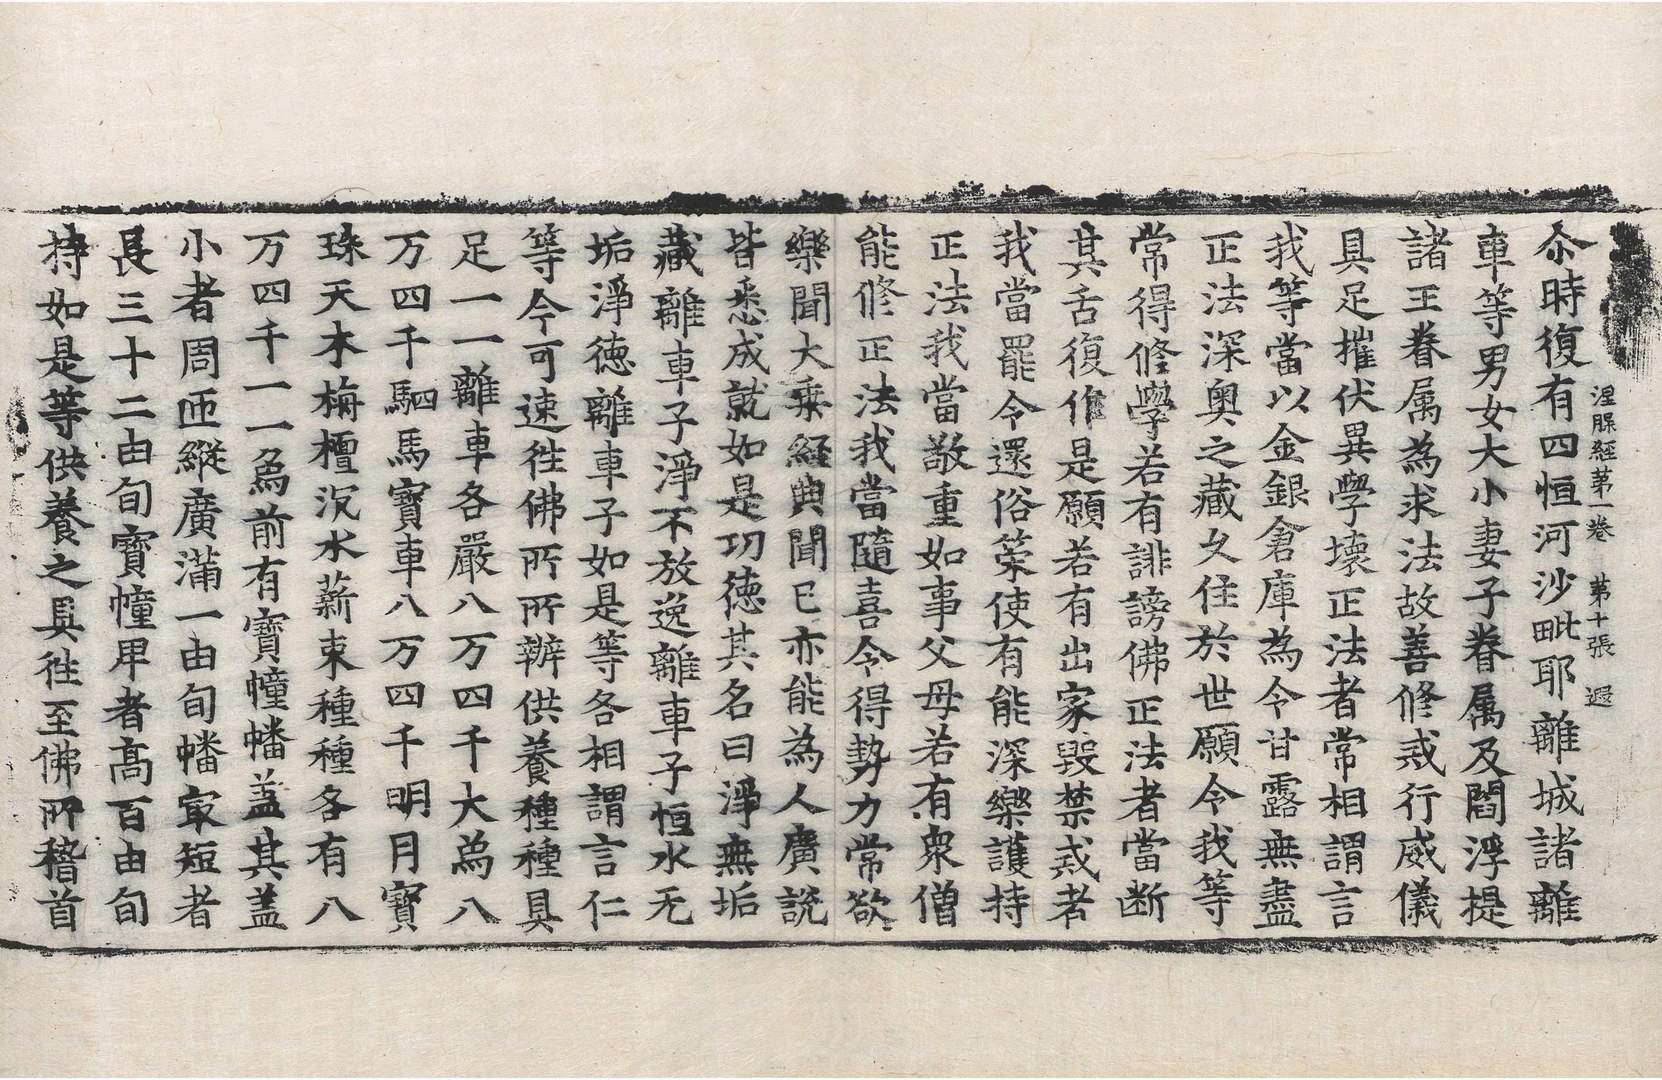 涅槃経苐一卷　苐十張　遐
尒時復有四恒河沙毗耶離城諸離
車等男女大小妻子眷属及閻浮提
諸王眷属為求法故善修戒行威儀
具足摧伏異學壞正法者常相謂言
我等當以金銀倉庫為令甘露無盡
正法深奥之藏久住於世願令我等
常得修學若有誹謗佛正法者當断
其舌復作是願若有出家毀禁戒者
我當罷令還俗策使有能深樂護持
正法我當敬重如事父母若有衆僧
能修正法我當隨喜令得勢力常欲
樂聞大乗経典聞已亦能為人廣説
皆悉成就如是功徳其名曰淨無垢
藏離車子淨不放逸離車子恒水无
垢淨徳離車子如是等各相謂言仁
等今可速徃佛所所辦供養種種具
足一一離車各嚴八万四千大為八
万四千駟馬寶車八万四千明月寶
珠天木栴檀沉水薪束種種各有八
万四千一一為前有寶幢幡盖其盖
小者周匝縱廣滿一由旬幡㝡短者
長三十二由旬寶幢甲者髙百由旬
持如是等供養之具徃至佛所稽首